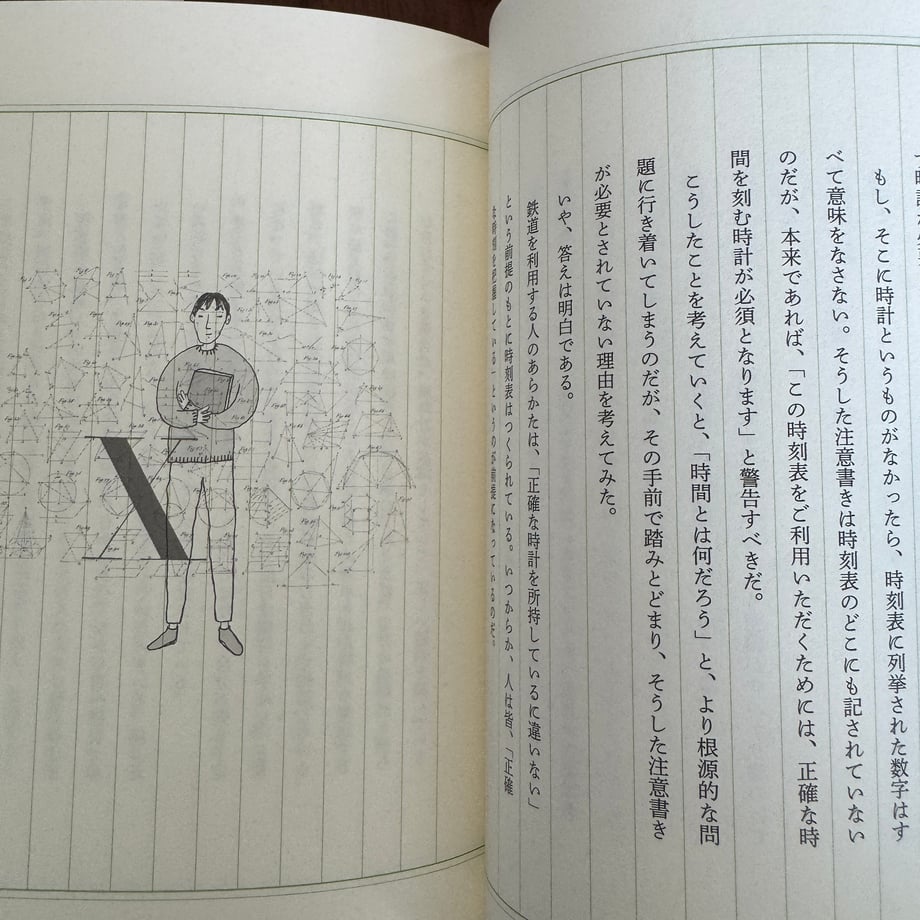 もし、そこに時計というものがなかったら、時刻表に列挙された数字はす
べて意味をなさない。そうした注意書きは時刻表のどこにも記されていない
のだが、本来であれば、「この時刻表をご利用いただくためには、正確な時
間を刻む時計が必須となります」と警告すべきだ。
こうしたことを考えていくと、「時間とは何だろう」と、より根源的な問
題に行き着いてしまうのだが、その手前で踏みとどまり、そうした注意書き
が必要とされていない理由を考えてみた。
いや、答えは明白である。
鉄道を利用する人のあらかたは、「正確な時計を所持しているに違いない」
という前提のもとに時刻表はつくられている。いつからか、人は皆、「正確
な時間を把握している」というのが前提になっているのだ。
X